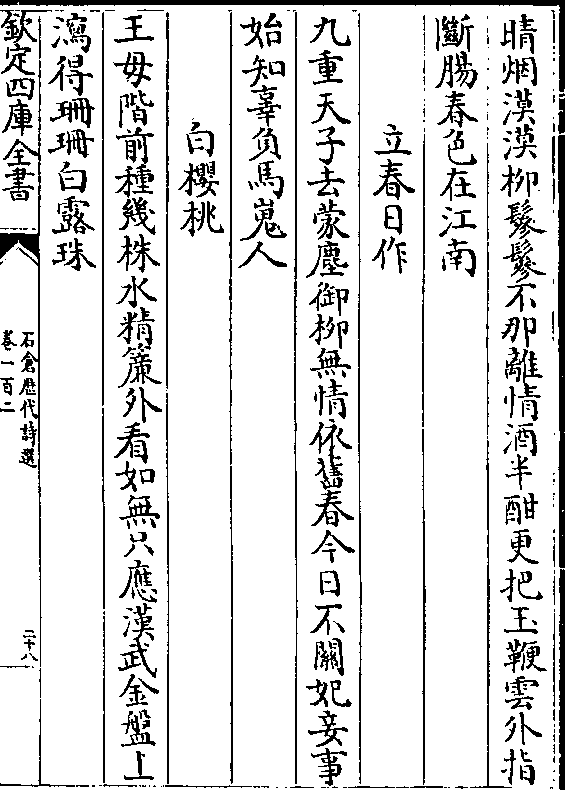 晴烟漠漠柳鬖鬖不那離情酒半酣更把玉鞭雲外指
斷腸春色在江南
立春日作
九重天子去蒙塵御柳無情依舊春今日不關妃妾事
始知辜負馬嵬人
白櫻桃
王母階前種幾株水精簾外看如無只應漢武金盤上
瀉得珊珊白露珠
欽定四庫全書
石倉歴代詩選
卷一百二
二十八